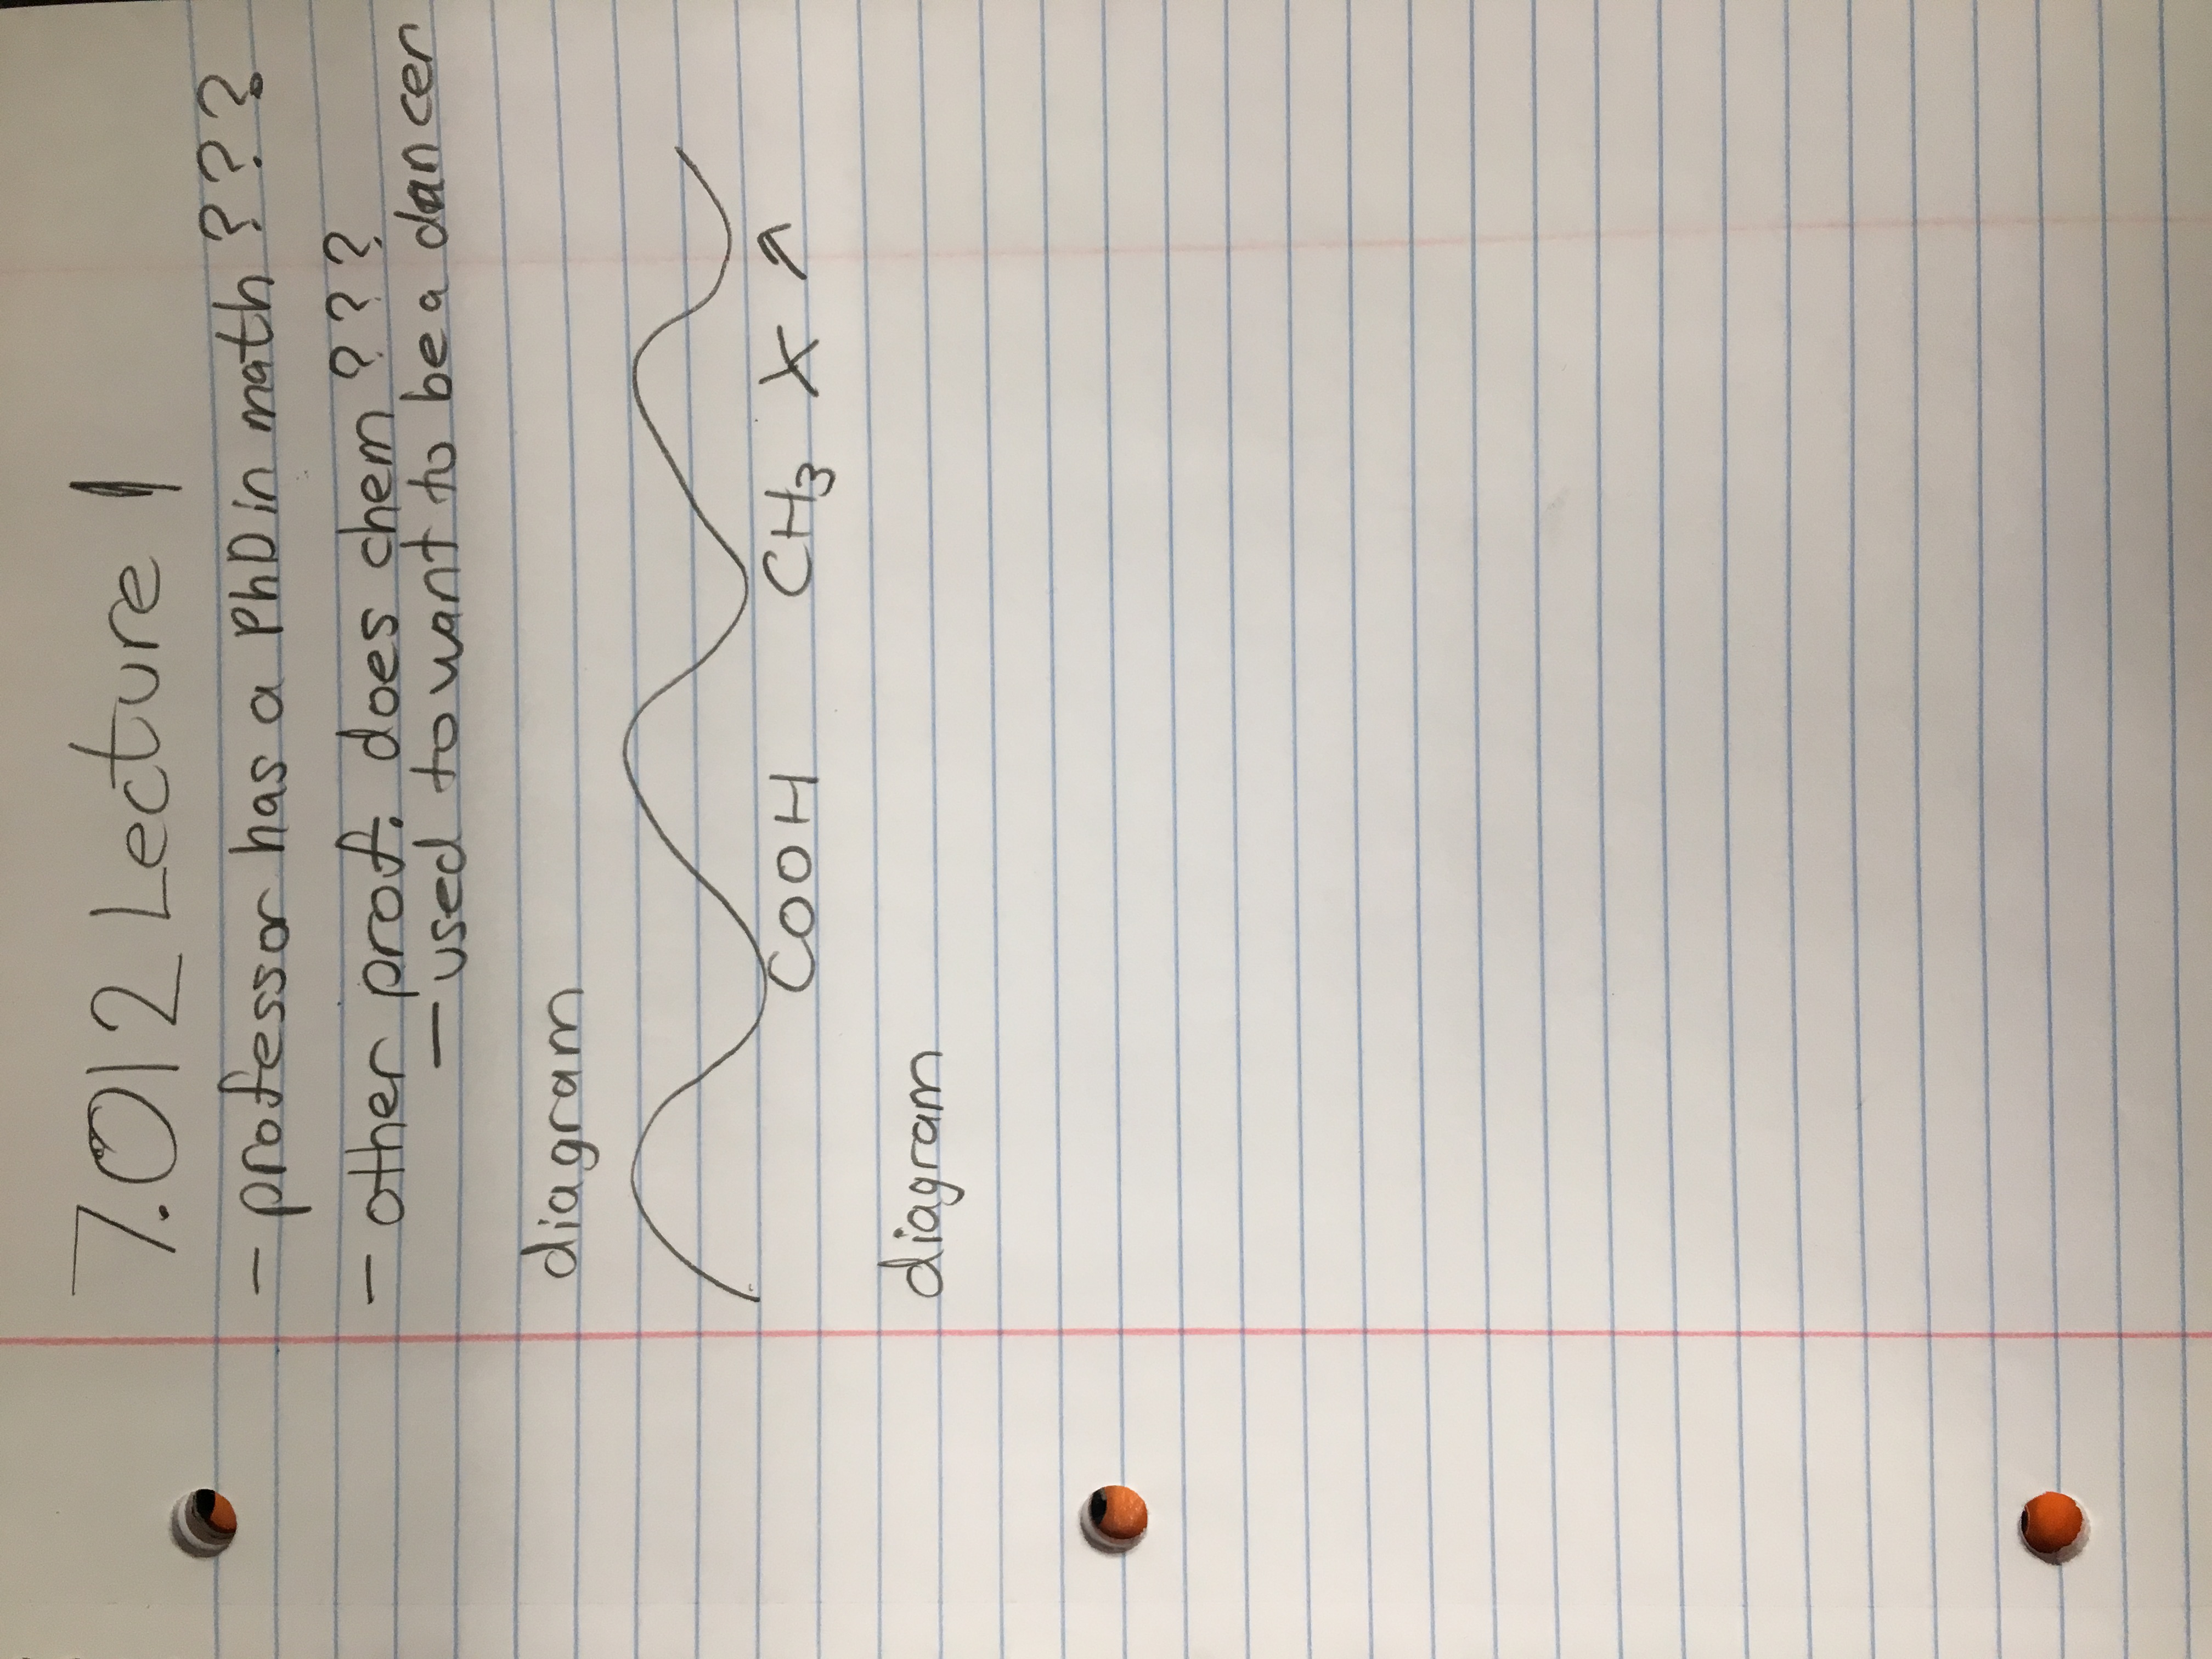 7.012 Lecture 1
- professor has a PhD in math ???
- other prof. does chem ???
- used to want to be a dancer
diagram
COOH CH₃ X ↗
diagram